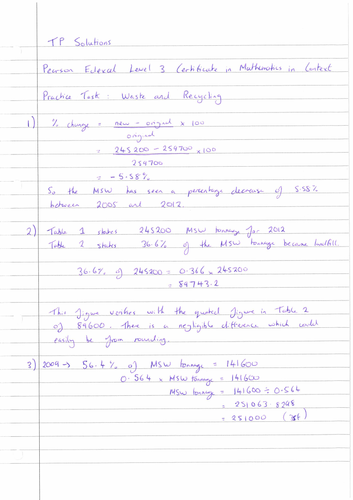 TP Solutions
Pearson Edexcel Level 3 Certificate in Mathematics in Context
Practice Task : Waste and Recycling
1) % change = new - original x 100
original
= 245200 - 259700 x 100
259700
= -5.58%
So the MSW has seen a percentage decrease of 5.58%
between 2005 and 2012.
2) Table 1 states 245200 MSW tonnage for 2012
Table 2 states 36.6% of the MSW tonnage became landfill.
36.6% of 245200 = 0.366 x 245200
= 89743.2
This figure verifies with the quoted figure in Table 2
of 89600. There is a negligible difference which could
easily be from rounding.
3) 2009 → 56.4% of MSW tonnage = 141600
0.564 x MSW tonnage = 141600
MSW tonnage = 141600 ÷ 0.564
= 251063.8298
= 251000 (3sf)